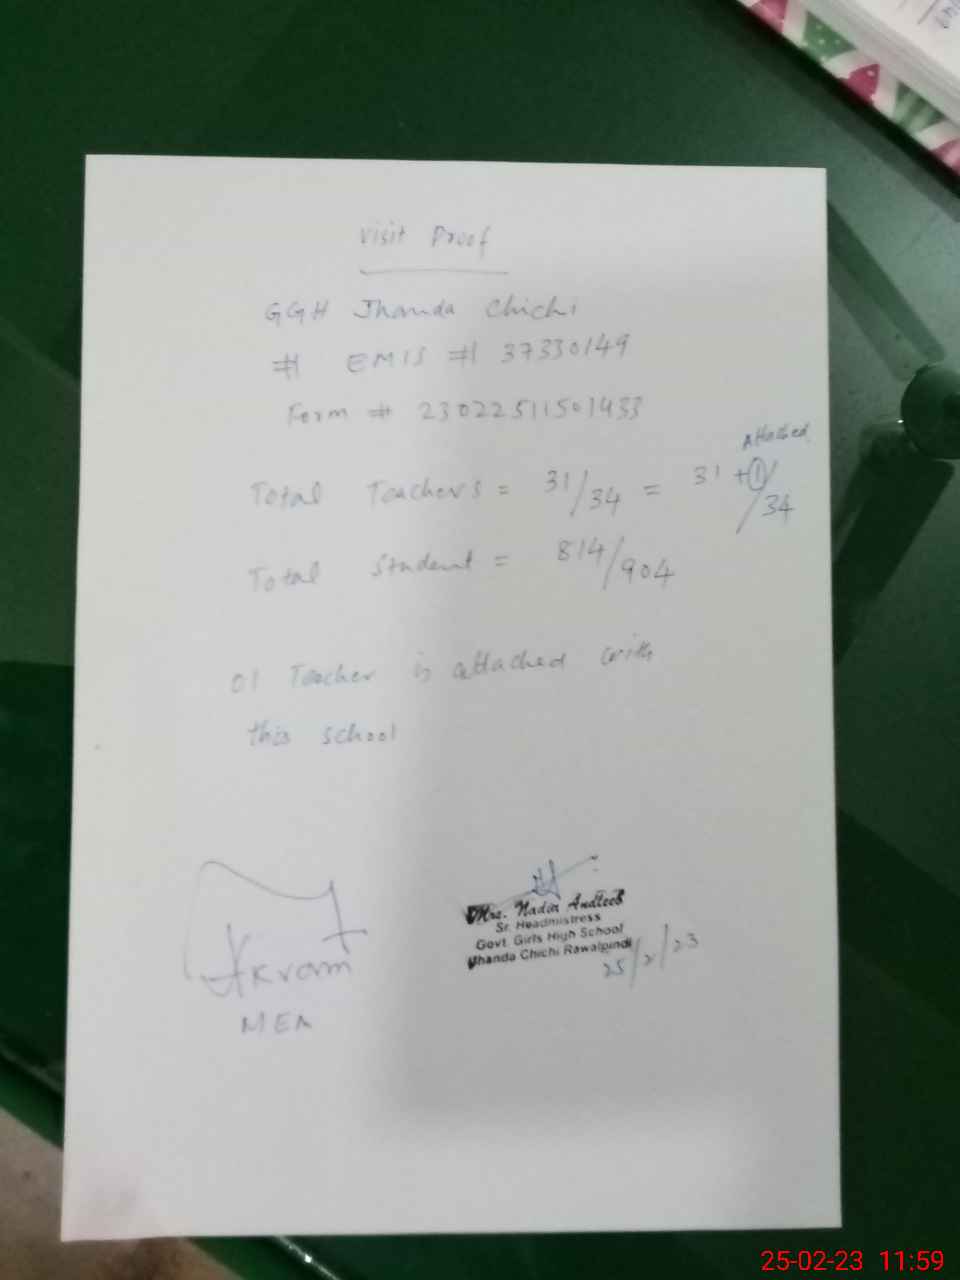 Visit Proof
GGH Jhanda Chichi
# EMIS # 37330149
Form # 23022511501433
Attached
Total Teachers = 31/34 = 31 + 1/34
Total Student = 814/904
01 Teacher is attached with
this school
Akram
MEA
Mrs. Nadia Andleeb
Sr. Headmistress
Govt. Girls High School
Jhanda Chichi Rawalpindi
25/2/23
25-02-23 11:59